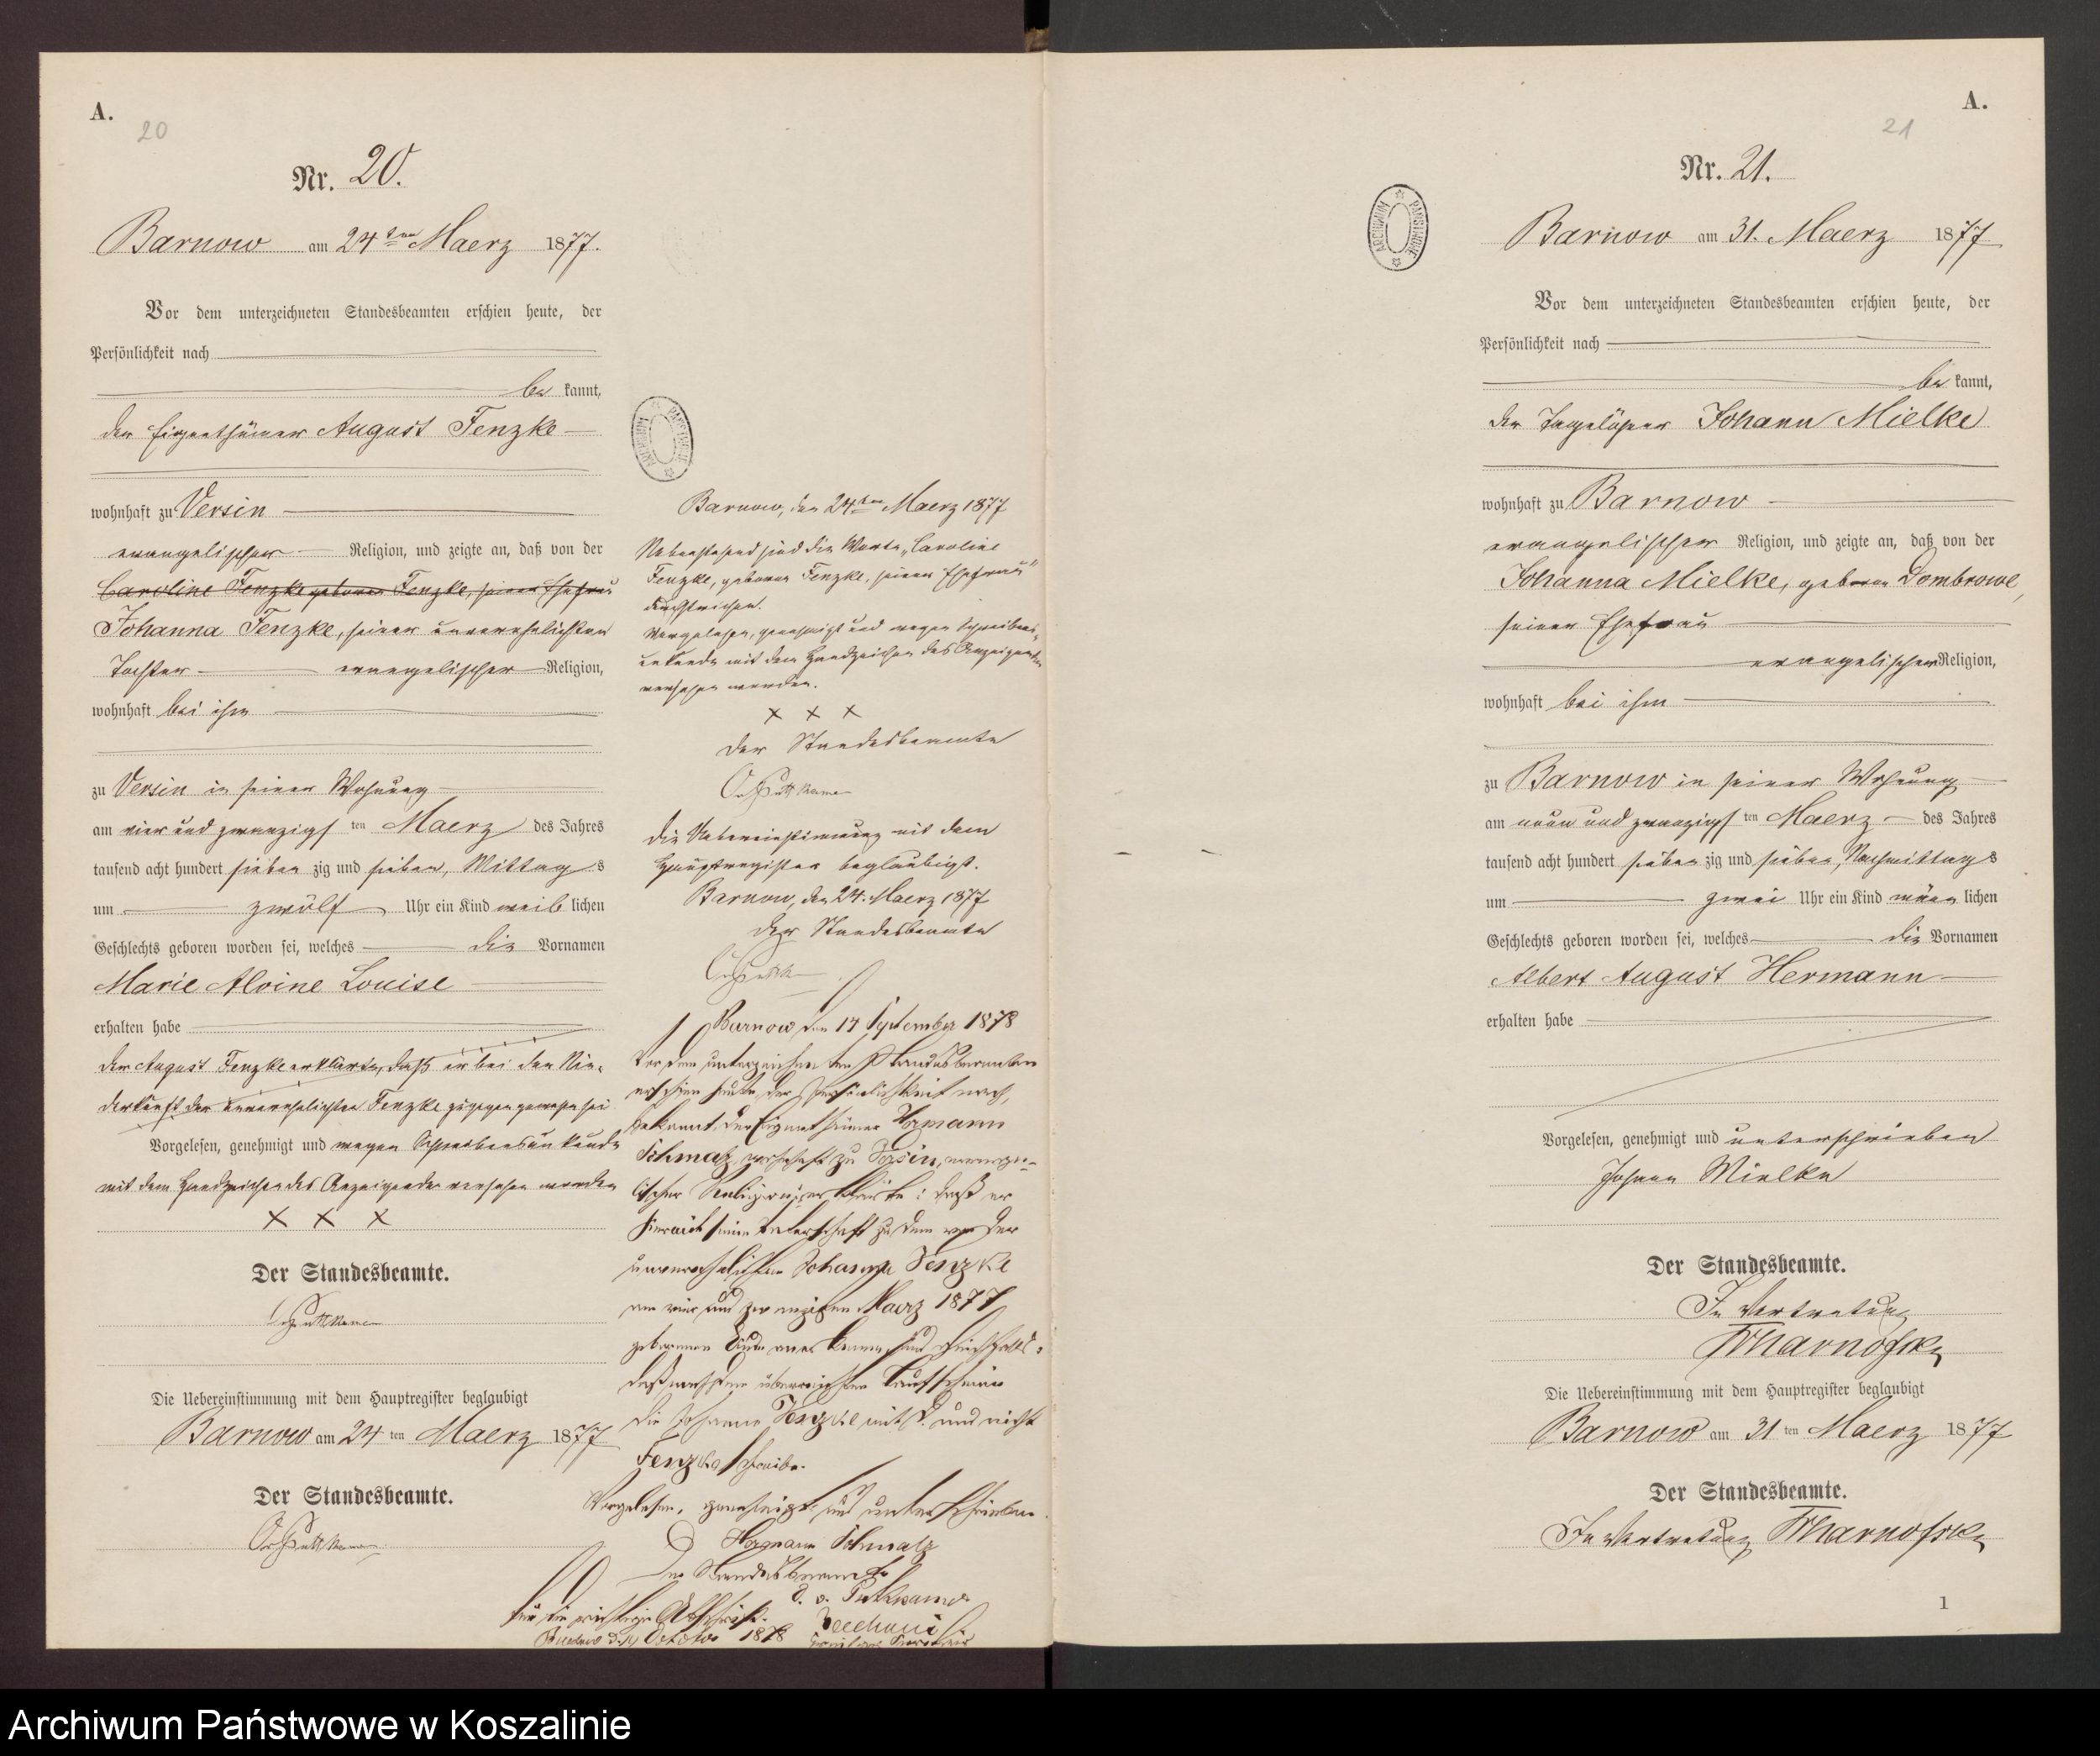 A.
20
Nr. 20.
Barnow am 24ten Maerz 1877.
Vor dem unterzeichneten Standesbeamten erschien heute, der
Persönlichkeit nach
be kannt,
der Eigenthümer August Fenzke
wohnhaft zu Versin
evangelischer Religion, und zeigte an, daß von der
Caroline Fenzke geborner Fenzke, seiner Ehefrau
Johanna Fenzke, seiner unverehelichten
Tochter evangelischer Religion,
wohnhaft bei ihm
zu Versin in seiner Wohnung
am vier und zwanzigs ten Maerz des Jahres
tausend acht hundert sieben zig und sieben, Mittag s
um zwölf Uhr ein Kind weib lichen
Geschlechts geboren worden sei, welches die Vornamen
Marie Alvine Louise
erhalten habe
der August Fenzke erklärte, daß er bei der Nie-
derkunft der unverehelichten Fenzke zugegen gewesen sei
Vorgelesen, genehmigt und wegen Schreibensunkunde
mit dem Handzeichen des Anzeigenden versehen worden
X X X
Der Standesbeamte.
Die Uebereinstimmung mit dem Hauptregister beglaubigt
Barnow am 24 ten Maerz 1877
Der Standesbeamte.
Barnow, den 24ten Maerz 1877
Nebenstehend sind die Worte „Caroline
Fenzke, geborner Fenzke, seiner Ehefrau"
durchstrichen.
Vorgelesen, genehmigt und wegen Schreibens-
unkunde mit dem Handzeichen des Anzeigenden
versehen worden.
X X X
Der Standesbeamte
Die Uebereinstimmung mit dem
Hauptregister beglaubigt.
Barnow, den 24. Maerz 1877
Der Standesbeamte
Barnow den 17 September 1878
Vor dem unterzeichneten Standesbeamten
erschien heute, der Persönlichkeit nach,
bekannt, der Eigenthümer Hermann
Schmalz, wohnhaft zu Versin, evange-
lischer Religion, erklärte: daß er
hiermit seine Vaterschaft zu dem von der
unverehelichten Johanna Fenzke
am vier und zwanzigsten Maerz 1877
geborenen Kinde anerkenne, und
daß nach dem überreichten Taufschein
die Johanna mit und nicht
Fenzke schreibe.
Vorgelesen, genehmigt und unterschrieben
Hermann Schmalz
Der Standesbeamte
v. Puttkamer
Für die richtige Abschrift.
October 1878
ARCHIWUM PAŃSTWOWE
A.
21
Nr. 21.
Barnow am 31. Maerz 1877
Vor dem unterzeichneten Standesbeamten erschien heute, der
Persönlichkeit nach
be kannt,
der Tagelöhner Johann Mielke
wohnhaft zu Barnow
evangelischer Religion, und zeigte an, daß von der
Johanna Mielke, geborne Dombrowe,
seiner Ehefrau
evangelischer Religion,
wohnhaft bei ihm
zu Barnow in seiner Wohnung
am neun und zwanzigs ten Maerz des Jahres
tausend acht hundert sieben zig und sieben, Nachmittag s
um zwei Uhr ein Kind männ lichen
Geschlechts geboren worden sei, welches die Vornamen
Albert August Hermann
erhalten habe
Vorgelesen, genehmigt und unterschrieben
Johann Mielke
Der Standesbeamte.
In Vertretung
Die Uebereinstimmung mit dem Hauptregister beglaubigt
Barnow am 31 ten Maerz 1877
Der Standesbeamte.
In Vertretung
1
Archiwum Państwowe w Koszalinie